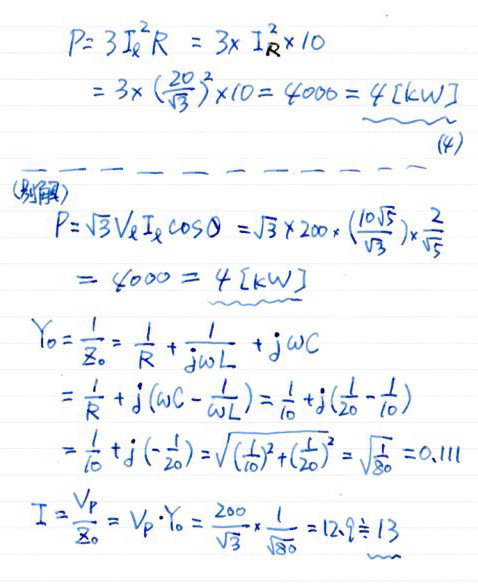 P = 3 I_ℓ² R = 3 × I_R² × 10
= 3 × (20/√3)² × 10 = 4000 = 4 [kW]
(4)
(別解)
P = √3 V_ℓ I_ℓ cosθ = √3 × 200 × (10√5/√3) × 2/√5
= 4000 = 4 [kW]
Y₀ = 1/Z₀ = 1/R + 1/jωL + jωC
= 1/R + j(ωC - 1/ωL) = 1/10 + j(1/20 - 1/10)
= 1/10 + j(-1/20) = √((1/10)² + (1/20)²) = √(1/80) = 0.111
I = V_P/Z₀ = V_P・Y₀ = 200/√3 × 1/√80 = 12.9 ≒ 13